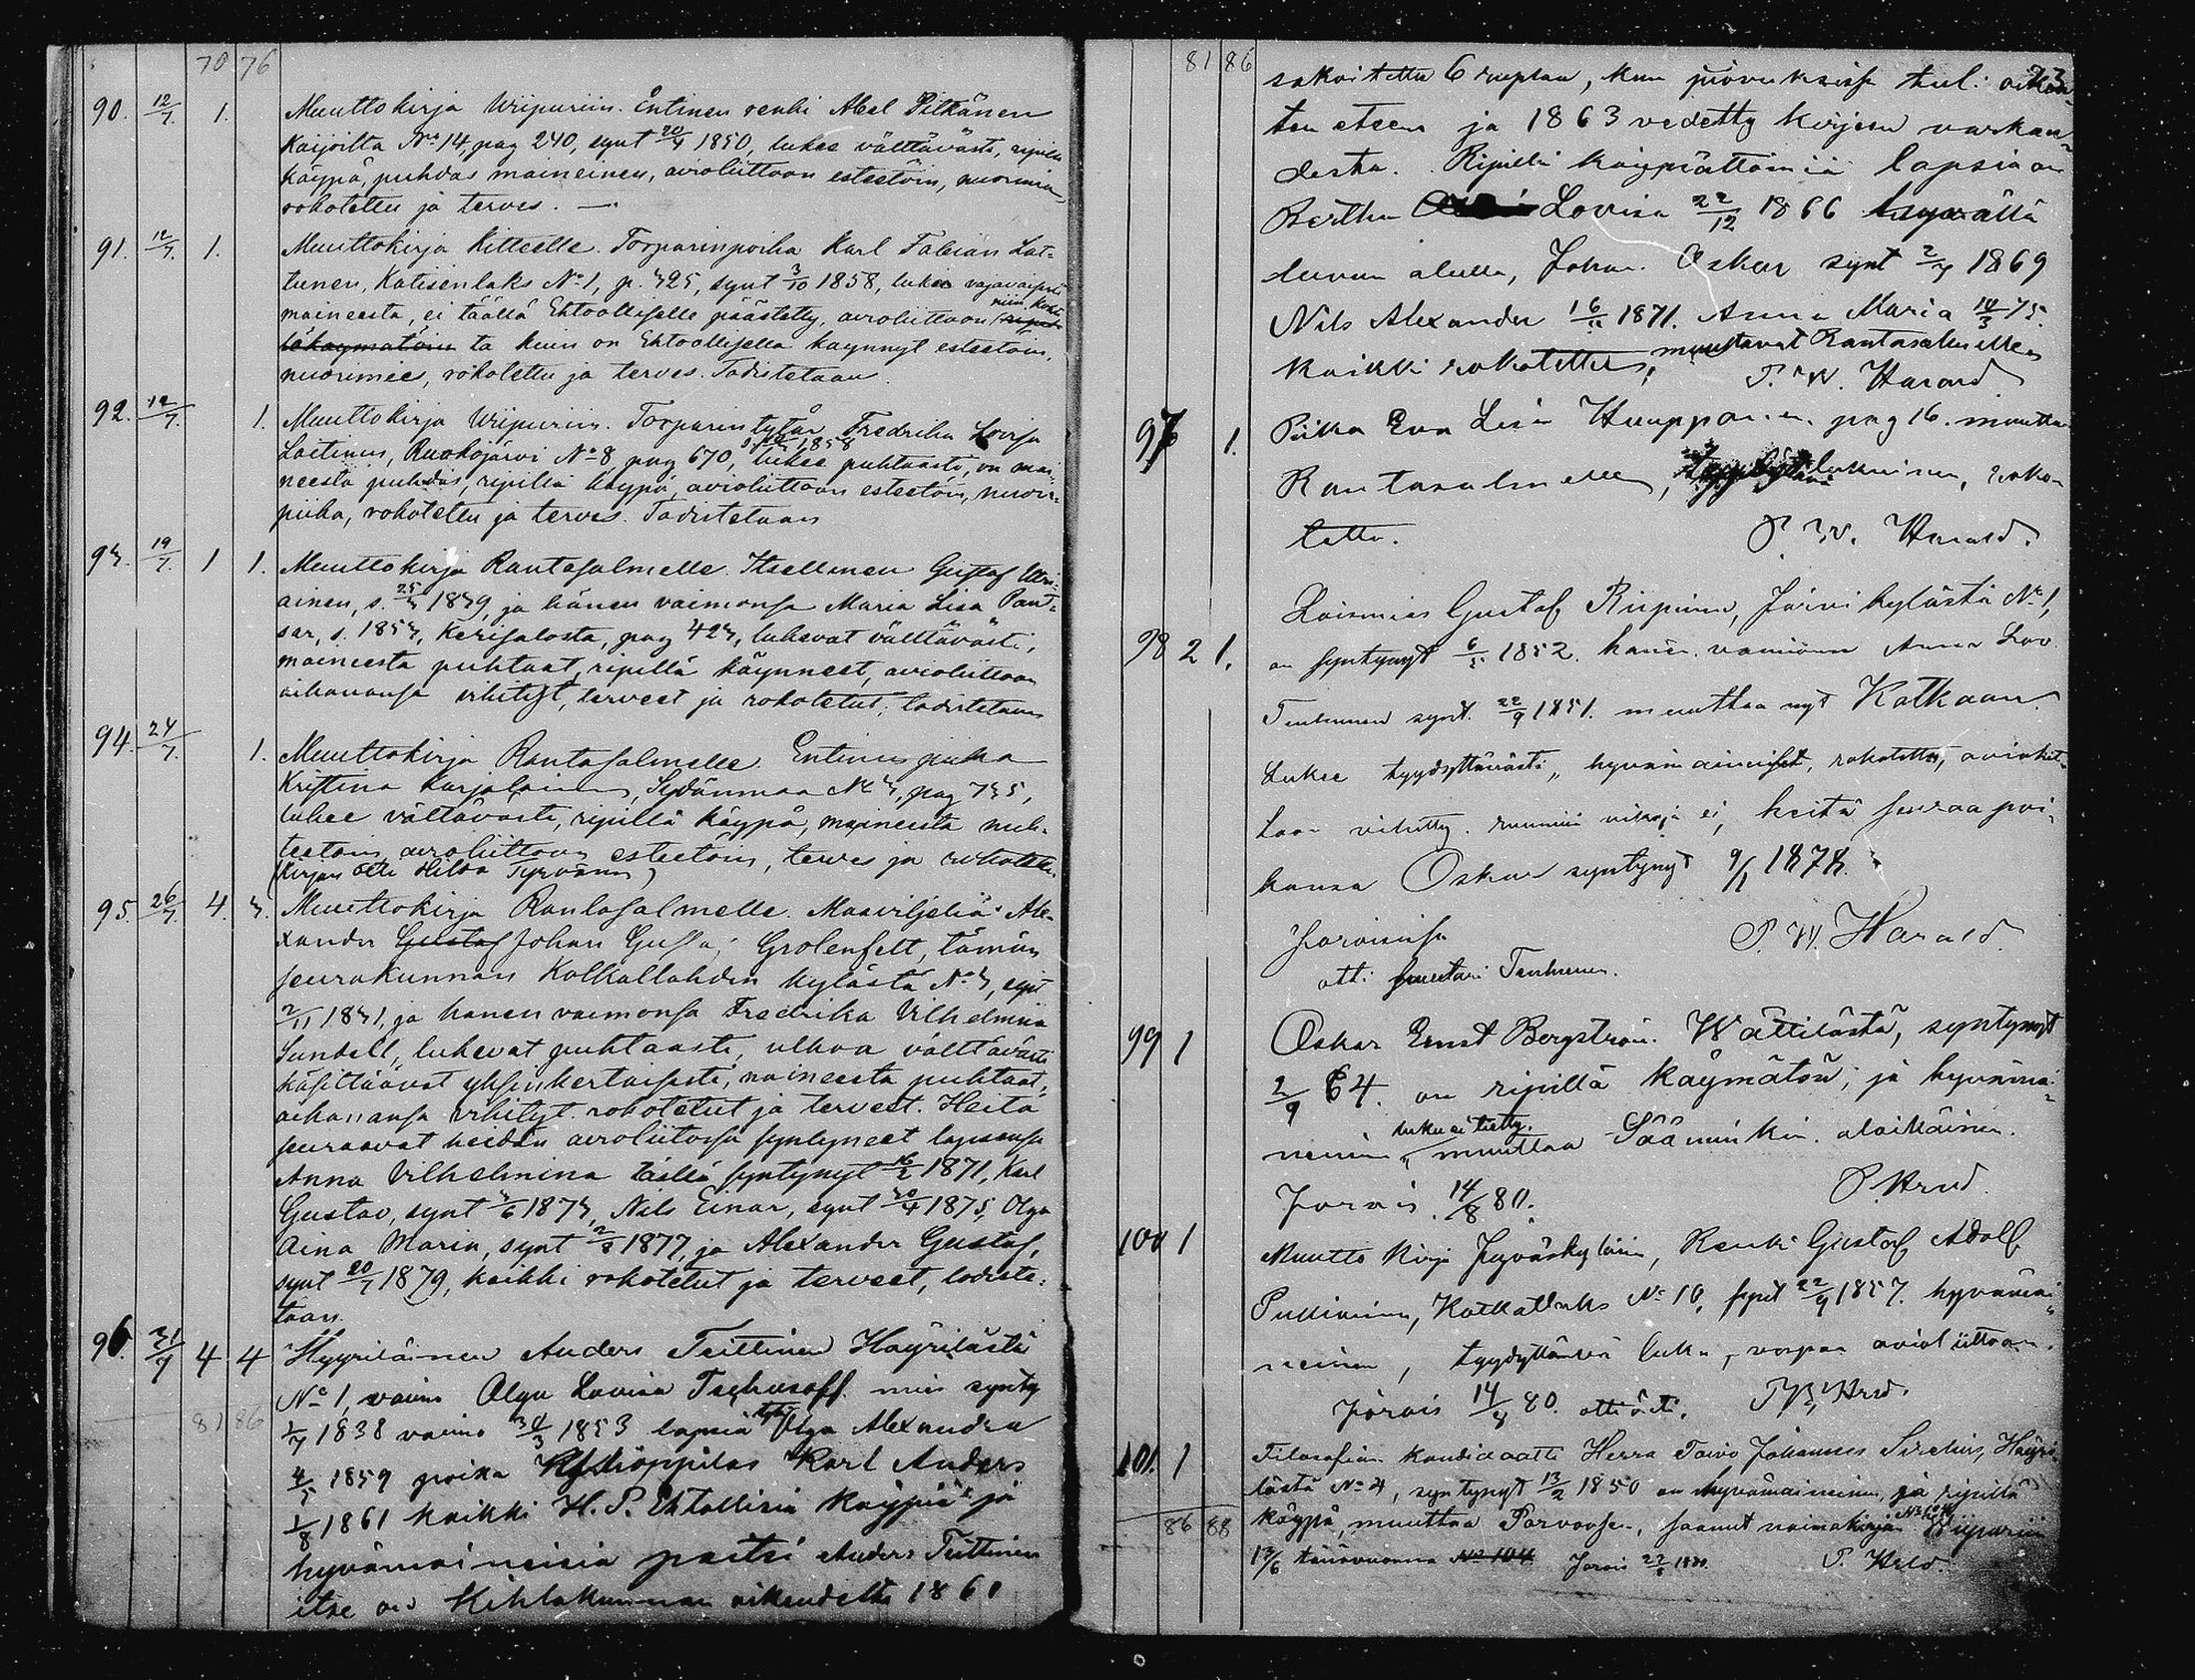 70 76
90. 12/7. 1. Muuttokirja Wiipuriin. Entinen renki Abel Pitkänen
Kaijoilta No 14, pag 240, synt 20/4 1850, lukee välttävästi, ripillä
käypä, puhdas maineinen, avioliittoon esteetöin, nuorimies
rokotettu ja terves. —
91. 12/7. 1. Muuttokirja Kitteelle. Torparinpoika Karl Fabian Lat-
tunen, Katisenlaks No 1, p. 325, synt 3/10 1858, lukee vajavaisesti
maineesta, ei täällä Ehtoolliselle päästetty, avioliittoon niin
ta kuin on Ehtoollisella käynnyt esteetöin,
nuorimies, rokotettu ja terves. Todistetaan.
92. 12/7. 1. Muuttokirja Wiipuriin. Torparin tytär Fredrika Lovisa
1858
Laitinen, Ruokojärvi No 8 pag 670, lukee puhtaasti, on mai-
neesta puhdas, ripillä käypä, avioliittoon esteetöin, nuori
piika, rokotettu ja terves. Todistetaan
93. 19/7. 1 1. Muuttokirja Rantasalmelle. Itsellinen Gustaf
ainen, s. 25/3 1839, ja hänen vaimonsa Maria Lisa Pant-
sar, s. 1853, Kerisalosta, pag 423, lukevat välttävästi,
maineesta puhtaat, ripillä käynneet, avioliittoon
aikanansa vihityt, terveet ja rokotetut, todistetaan
94. 24/7. 1. Muuttokirja Rantasalmelle. Entinen piika
Kristina Karjalainen, Sydänmaa No 3, pag 735,
lukee välttävästi, ripillä käypä, maineesta nuh-
teetoin, avioliittoon esteetöin, terves ja rokotettu.
(Kirjan otti Hilda Tyrvänen)
95. 26/7. 4. 3. Muuttokirja Rantasalmelle. Maaviljeliä Ale-
xander Gustaf Johan Gustaf Grotenfelt, tämän
seurakunnan Kolkallahden kylästä No 3, synt
2/11 1831, ja hänen vaimonsa Fredrika Vilhelmina
Sundell, lukevat puhtaasti, ulkoa välttävästi
käsittäävät yksinkertaisesti, maineesta puhtaat,
aikanansa vihityt, rokotetut ja terveet. Heitä
seuraavat heidän avioliitossa syntyneet lapsensa
Anna Vilhelmina täällä syntynyt 16/2 1871, Karl
Gustav, synt 3/6 1873, Nils Einar, synt 30/4 1875, Olga
Aina Maria, synt 2/8 1877, ja Alexander Gustaf,
synt 20/7 1879, kaikki rokotetut ja terveet, todiste-
taan.
96. 31/7 4 4 Hyyriläinen Anders Teittinen Häyrilästä
No 1, vaimo Olga Lovisa mies synty
1/7 1838 vaimo 1853 lapsia tytär Olga Alexandra
81 86
4/5 1859 poika Karl Anders
1/8 1861 kaikki H. P. Ehtollisia käypiä ja
hyvämaineisia paitsi Anders Teittinen
itse on Kihlakunnan oikeudelta 1861
81 86
sakoitettu 6 ruplaa, kun juovuksissa tul: oikeu
ten eteen ja 1863 vedetty kirjaan varkau-
desta. Ripillä käypättömiä lapsia on
Bertha Lovisa 22/12 1866 hyvällä
luvun alulla, Johan Oskar synt 2/7 1869
Nils Alexander 16/11 1871. Anna Maria 14/3 75.
kaikki rokotettu, muuttavat Rantasalmelle
P. W. Harald
97 1. Piika Eva Lisa Huuppanen, pag 16. muuttaa
Rantasalmelle, lukuinen, roko-
tettu. P. W. Harald.
Loismies Gustaf Riipinen, Järvikylästä No 1,
98 2 1. on syntynyt 6/5 1852. hänen vaimonsa Anna Lov.
Tenhunen synt. 22/9 1851. muuttaa nyt Kotkaan.
Lukee tyydyttävästi, hyvämaineiset, rokotettu, aviolit-
toon vihitty. ruumiin vikoja ei, heitä seuraa poi-
kansa Oskar syntynyt 9/1 1878.
Joroisissa P. W. Harald.
otti Tenhunen.
99 1 Oskar Ernst Bergström. Wättilästä, syntynyt
2/9 64. on ripillä käymätön, ja hyvämai-
luku ei tietty.
neinen, muuttaa Sääminkiin. alaikäinen.
Jorois 14/8 80. P. Hrld.
100 1 Muutto kirja Jyväskylään, Renki Gustaf Adolf
Pulliainen, Kotkatlaks No 10, synt 22/9 1857. hyvämai-
neinen, tyydyttävä luku, vapaa avioliittoon.
Jorois 14/8 80. otti äiti. P. W. Hrld.
101. 1 Filosofian kandidaatti Herra Toivo Johannes Sirelius, Häyri-
lästä No 4, syntynyt 13/2 1850 on hyvämaineinen, ja ripillä
käypä, muuttaa Porvoosen, saanut muuttokirjan No 104 Wiipuriin
86 88
13/6 tänävuonna No 104 Jorois 22/8 1880. P. Hrld.